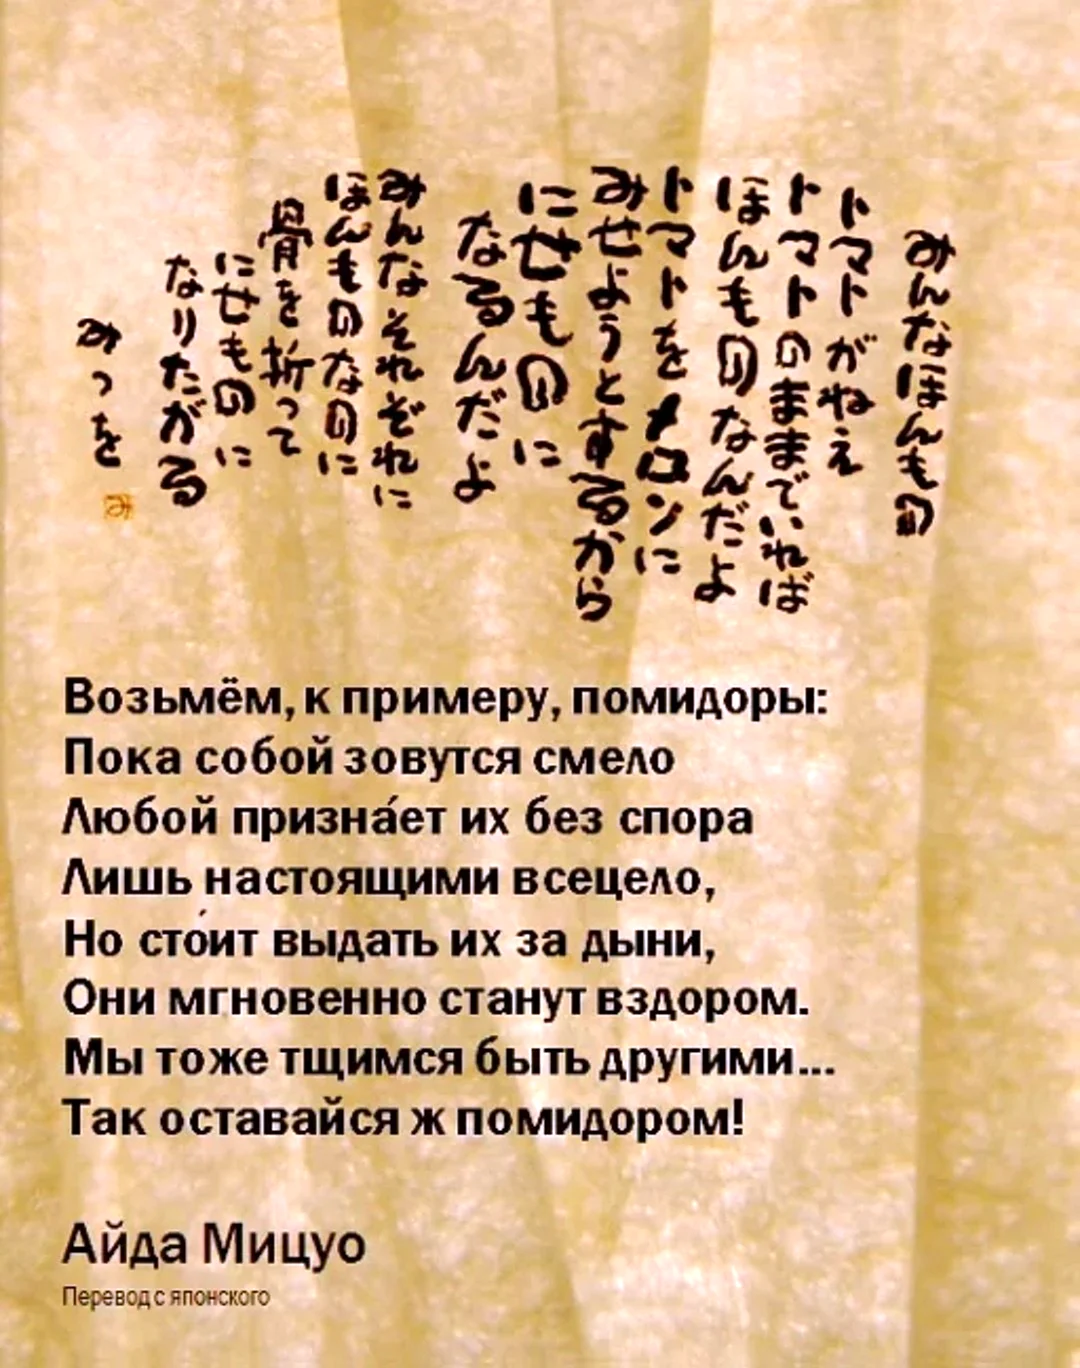 みんなほんもの
トマトがねえ
トマトのままでいれば
ほんものなんだよ
トマトをメロンに
みせようとするから
にせものに
なるんだよ
みんなそれぞれに
ほんものなのに
骨を折って
にせものに
なりたがる
みつを
み
Возьмём, к примеру, помидоры:
Пока собой зовутся смело
Любой призна́ет их без спора
Лишь настоящими всецело,
Но сто́ит выдать их за дыни,
Они мгновенно станут вздором.
Мы тоже тщимся быть другими...
Так оставайся ж помидором!
Айда Мицуо
Перевод с японского